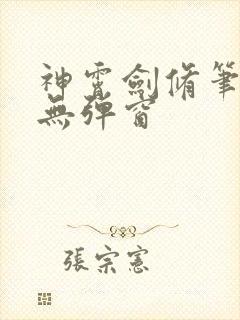 神霄劍脩筆
無彈窗
張宗憲